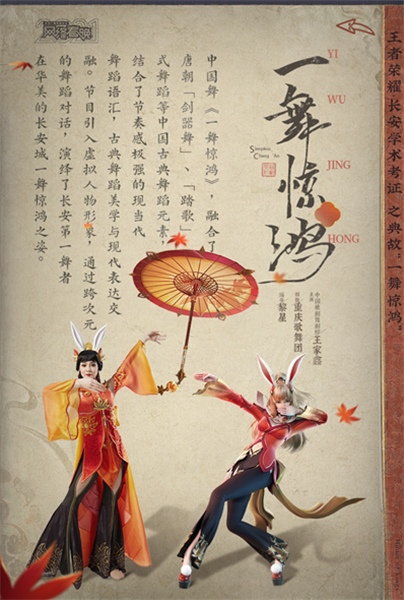 王者荣耀·长安学术考证 之典故:一舞惊鸿。
一舞惊鸿
YI
WU
JING
HONG
王家鑫
重庆歌舞团
黎星
中国舞《一舞惊鸿》,融合了
唐朝「剑器舞」、「踏歌」
式舞蹈等中国古典舞蹈元素,
结合了节奏感极强的现当代
舞蹈语汇,古典舞蹈美学与现代表达交
融。节目引入虚拟人物形象,通过跨次元
的舞蹈对话,演绎了长安第一舞者
在华美的长安城一舞惊鸿之姿。